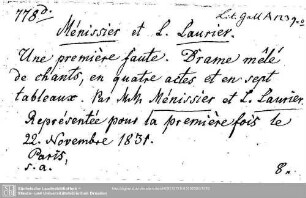 778d.
Lit. Gall. A 1239.0
Ménissier et L. Laurier.
Une première faute. Drame mêlé
de chants, en quatre actes et en sept
tableaux. Par M.M. Ménissier et L. Laurier.
Représentée pour la première fois le
22. Novembre 1831.
Paris,
s. a.
8°.
Sächsische Landesbibliothek -
Staats- und Universitätsbibliothek Dresden